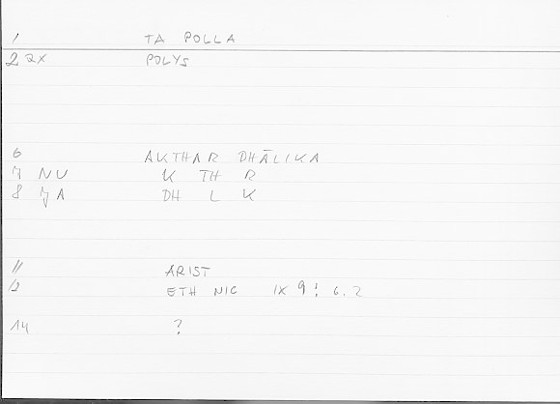 1 TA POLLA
2 2X POLYS
6 AKTHAR DHĀLIKA
7 NU K TH R
8 YA DH L K
11 ARIST
12 ETH NIC IX 9! 6.2
14 ?